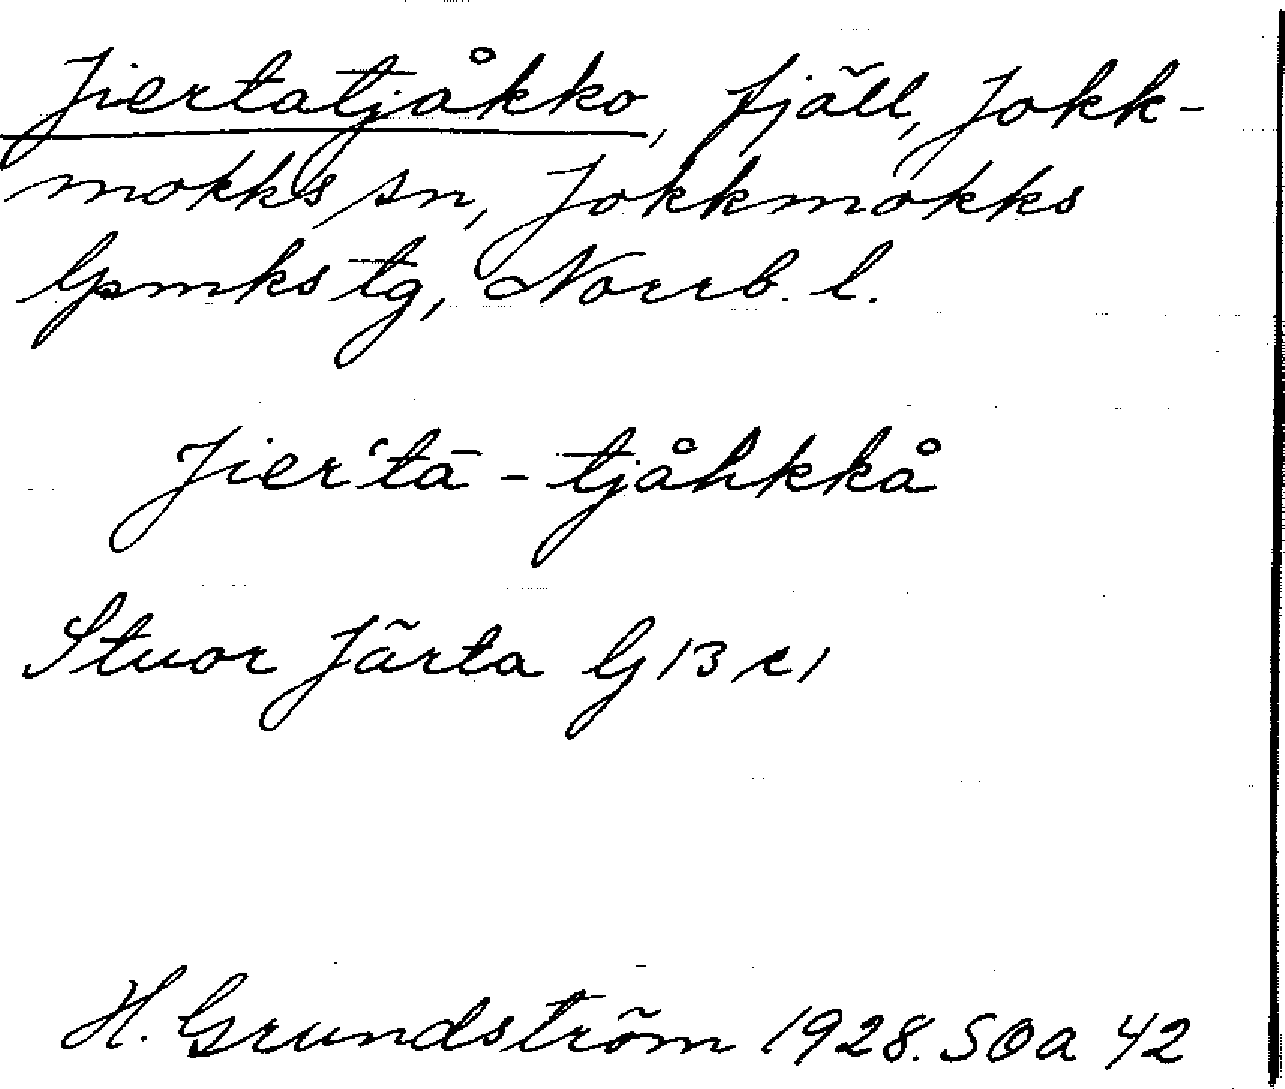 Jiertatjåkko, fjäll, Jokk-
mokks sn, Jokkmokks
lpmks tg, Norrb. l.
Jier'tā - tjåhkkå
Stuor Järta G 13 c 1
H. Grundström 1928. SOA 42